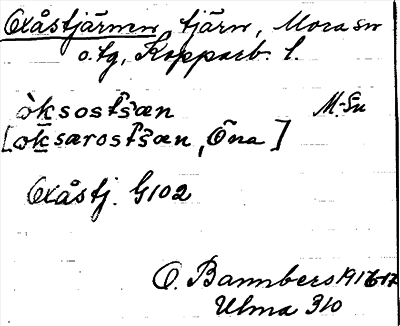 Oxåstjärnen, tjärn, Mora sn
o. tg, Kopparb. l.
òksostšæn M.-Sn
[òksarostšæn, Öna]
Oxåstj. G102
O. Bannbers 1916-17
Ulma 310